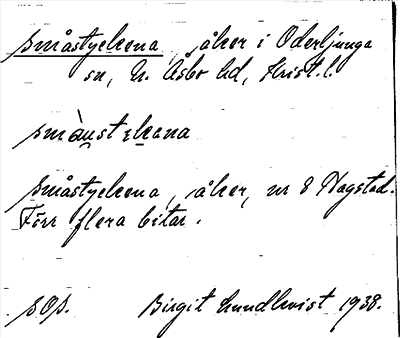 småstyckena, åker i Oderljunga
sn, N. Åsbo hd, Krist. l.
småstyckena, åker, nr 8 Nagstad.
Förr flera bitar.
sOp. Birgit Lundkvist 1938.